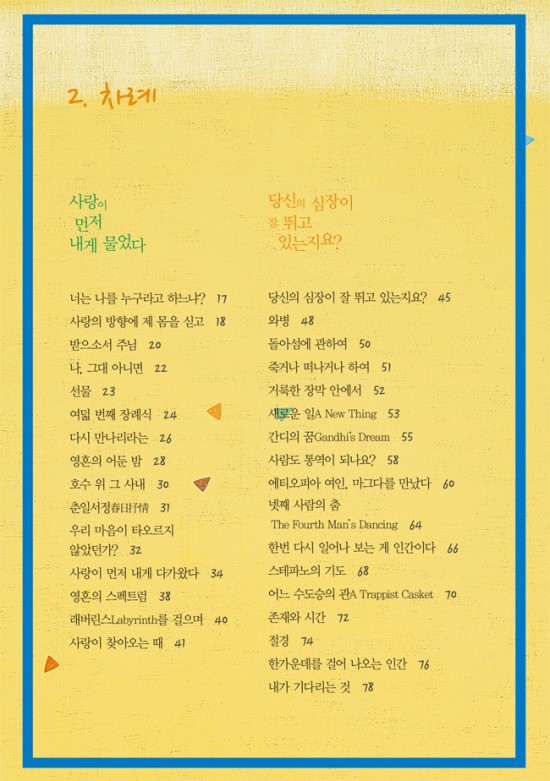 2. 차례
사랑이
먼저
내게 물었다
너는 나를 누구라고 하느냐? 17
사랑의 방향에 제 몸을 싣고 18
받으소서 주님 20
나, 그대 아니면 22
선물 23
여덟 번째 장례식 24
다시 만나리라는 26
영혼의 어둔 밤 28
호수 위 그 사내 30
춘일서정春日抒情 31
우리 마음이 타오르지
않았던가? 32
사랑이 먼저 내게 다가왔다 34
영혼의 스펙트럼 38
래버린스Labyrinth를 걸으며 40
사랑이 찾아오는 때 41
당신의 심장이
잘 뛰고
있는지요?
당신의 심장이 잘 뛰고 있는지요? 45
와병 48
돌아섬에 관하여 50
죽거나 떠나거나 하여 51
거룩한 장막 안에서 52
새로운 일A New Thing 53
간디의 꿈Gandhi's Dream 55
사람도 통역이 되나요? 58
에티오피아 여인, 마그다를 만났다 60
넷째 사람의 춤
The Fourth Man's Dancing 64
한번 다시 일어나 보는 게 인간이다 66
스테파노의 기도 68
어느 수도승의 관A Trappist Casket 70
존재와 시간 72
절경 74
한가운데를 걸어 나오는 인간 76
내가 기다리는 것 78